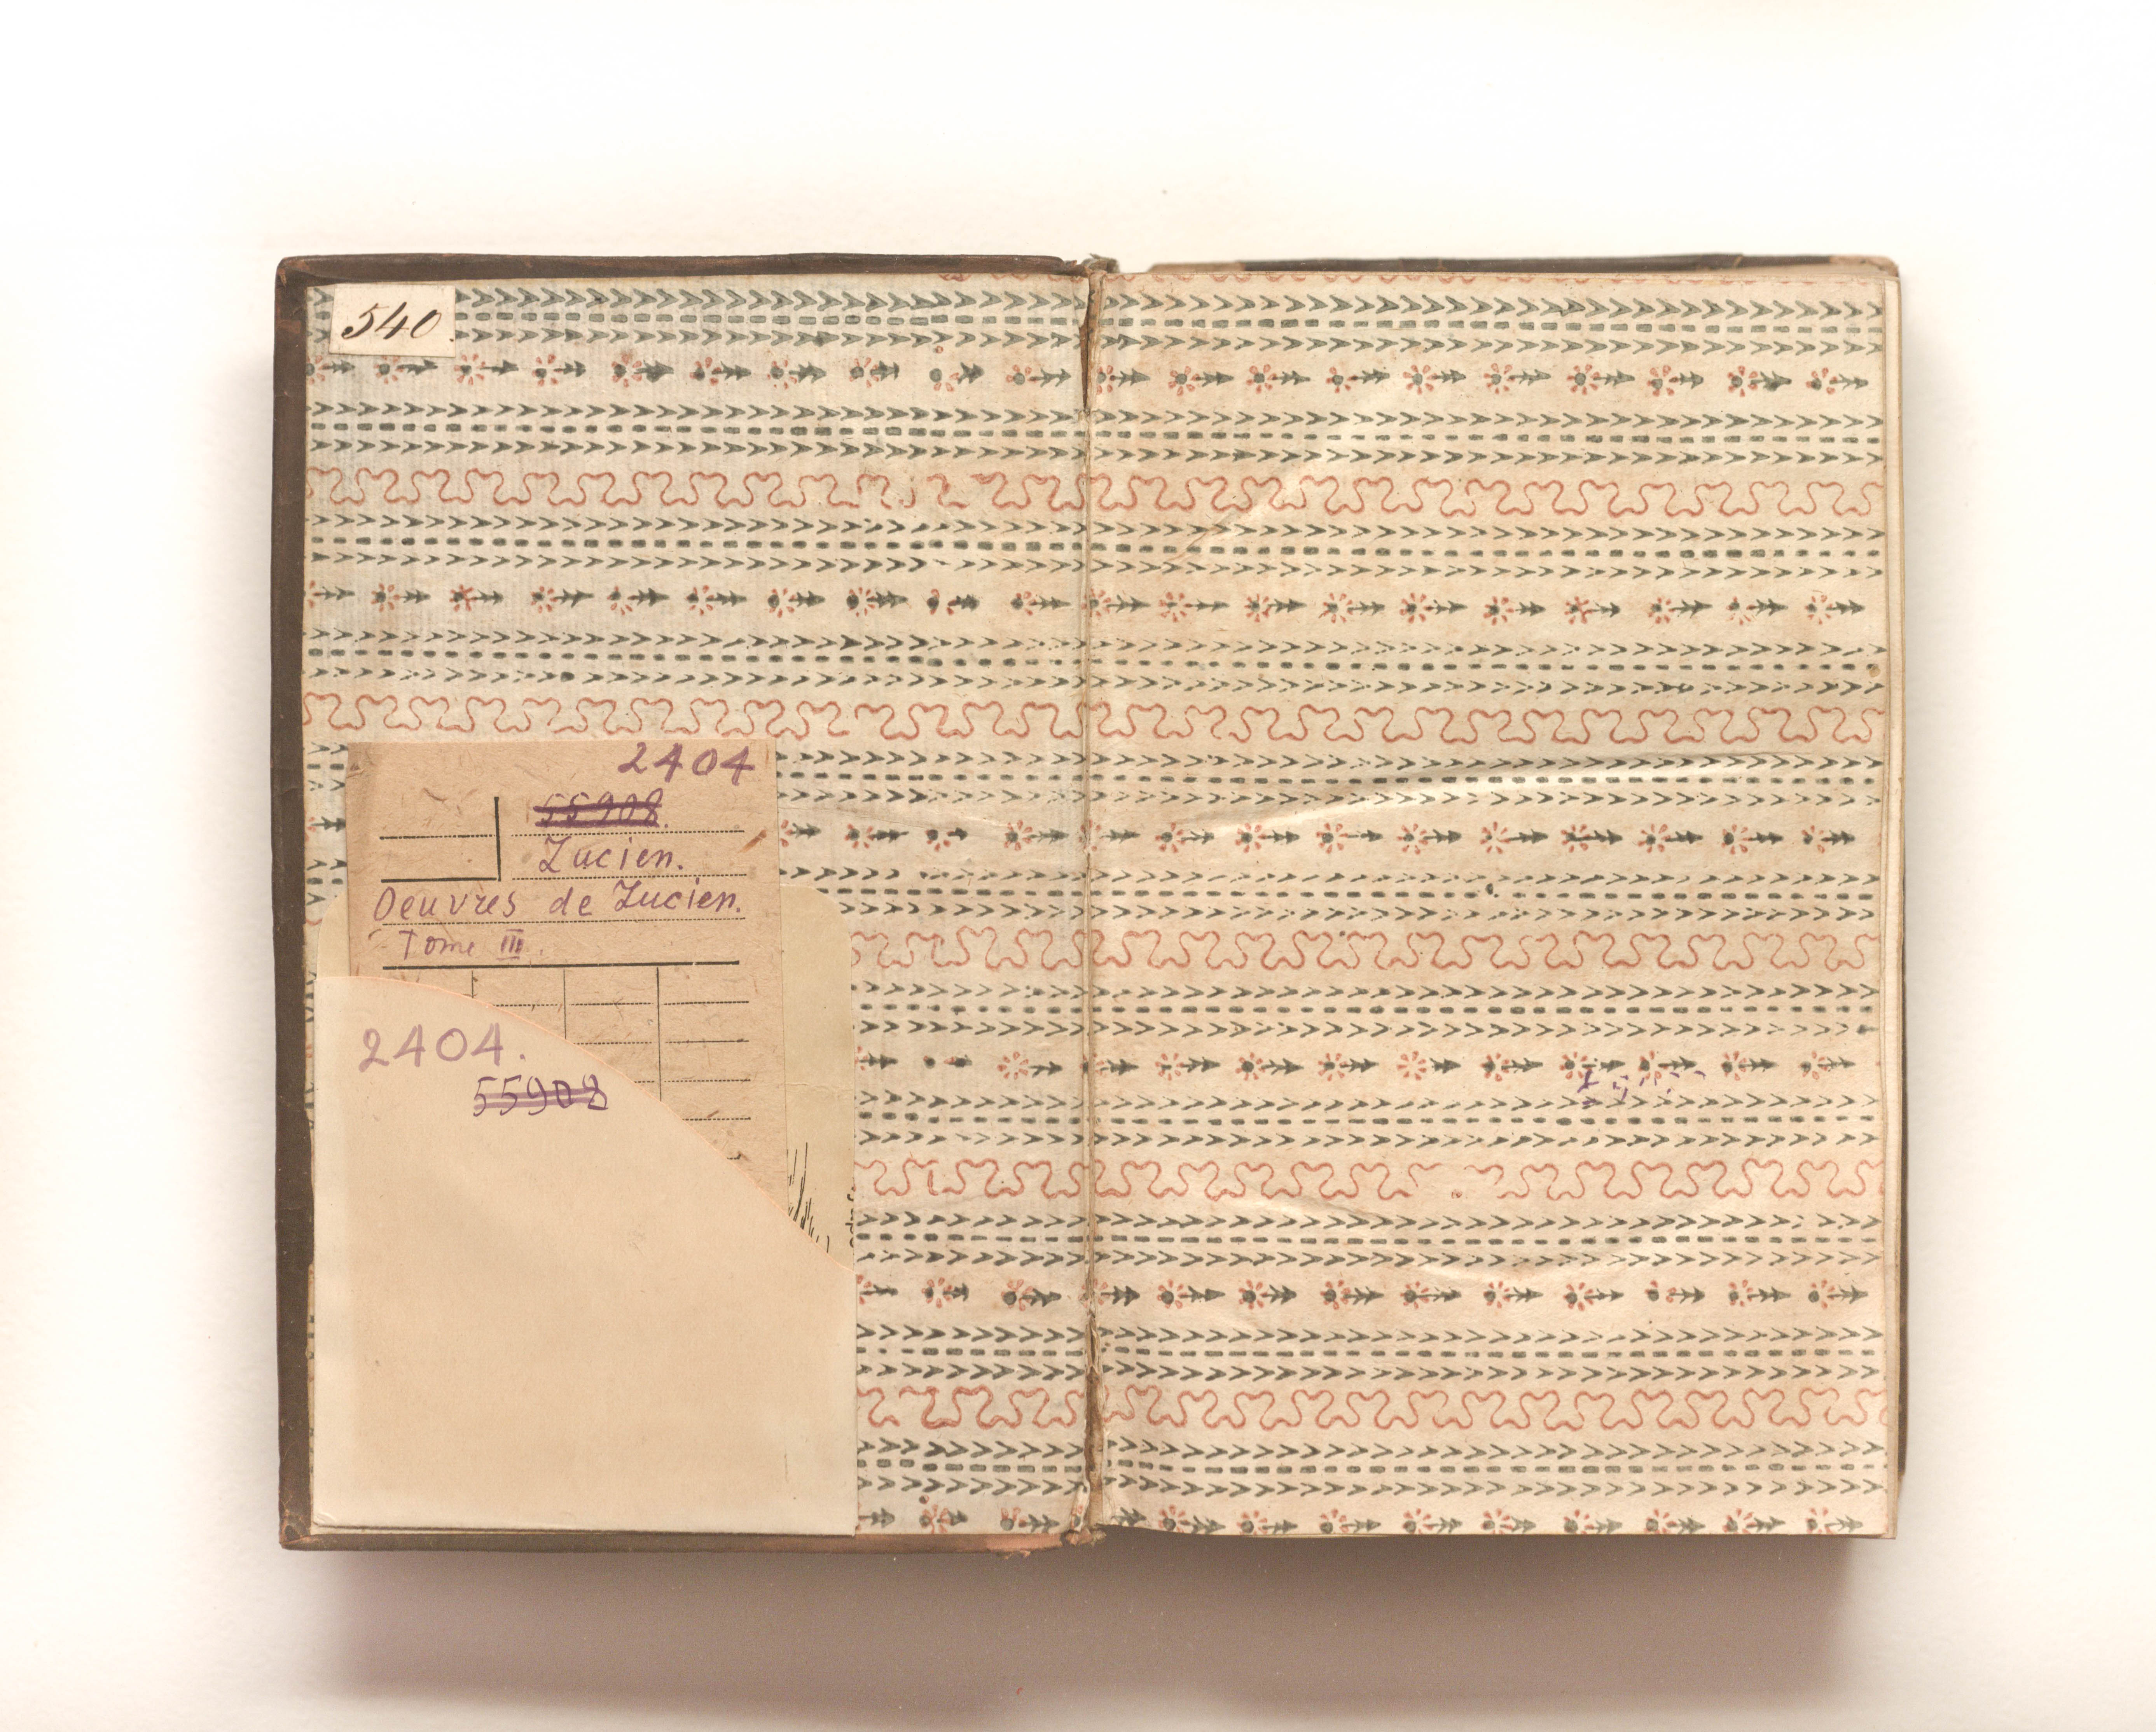 540.
2404
55908.
Lucien.
Oeuvres de Lucien.
Tome III.
2404.
55908